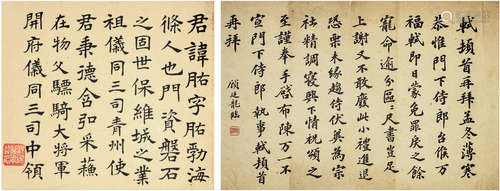 軾頓首再拜孟冬薄寒
恭惟門下侍郎台候萬
福軾即日蒙免罪戾之餘
寵命逾分區區尺書豈足
上謝又不敢廢此小禮進退
恐栗未緣趨侍伏冀為宗
社精調寢興下情祝頌之
至謹奉手啓布陳萬一不
宣門下侍郎執事軾頓首
再拜
顧廷龍臨
君諱字勃海
條人也門資磐石
之固世保維城之業
祖儀同三司青州使
君秉德含弘采蘓
在物父驃騎大將軍
開府儀同三司中領